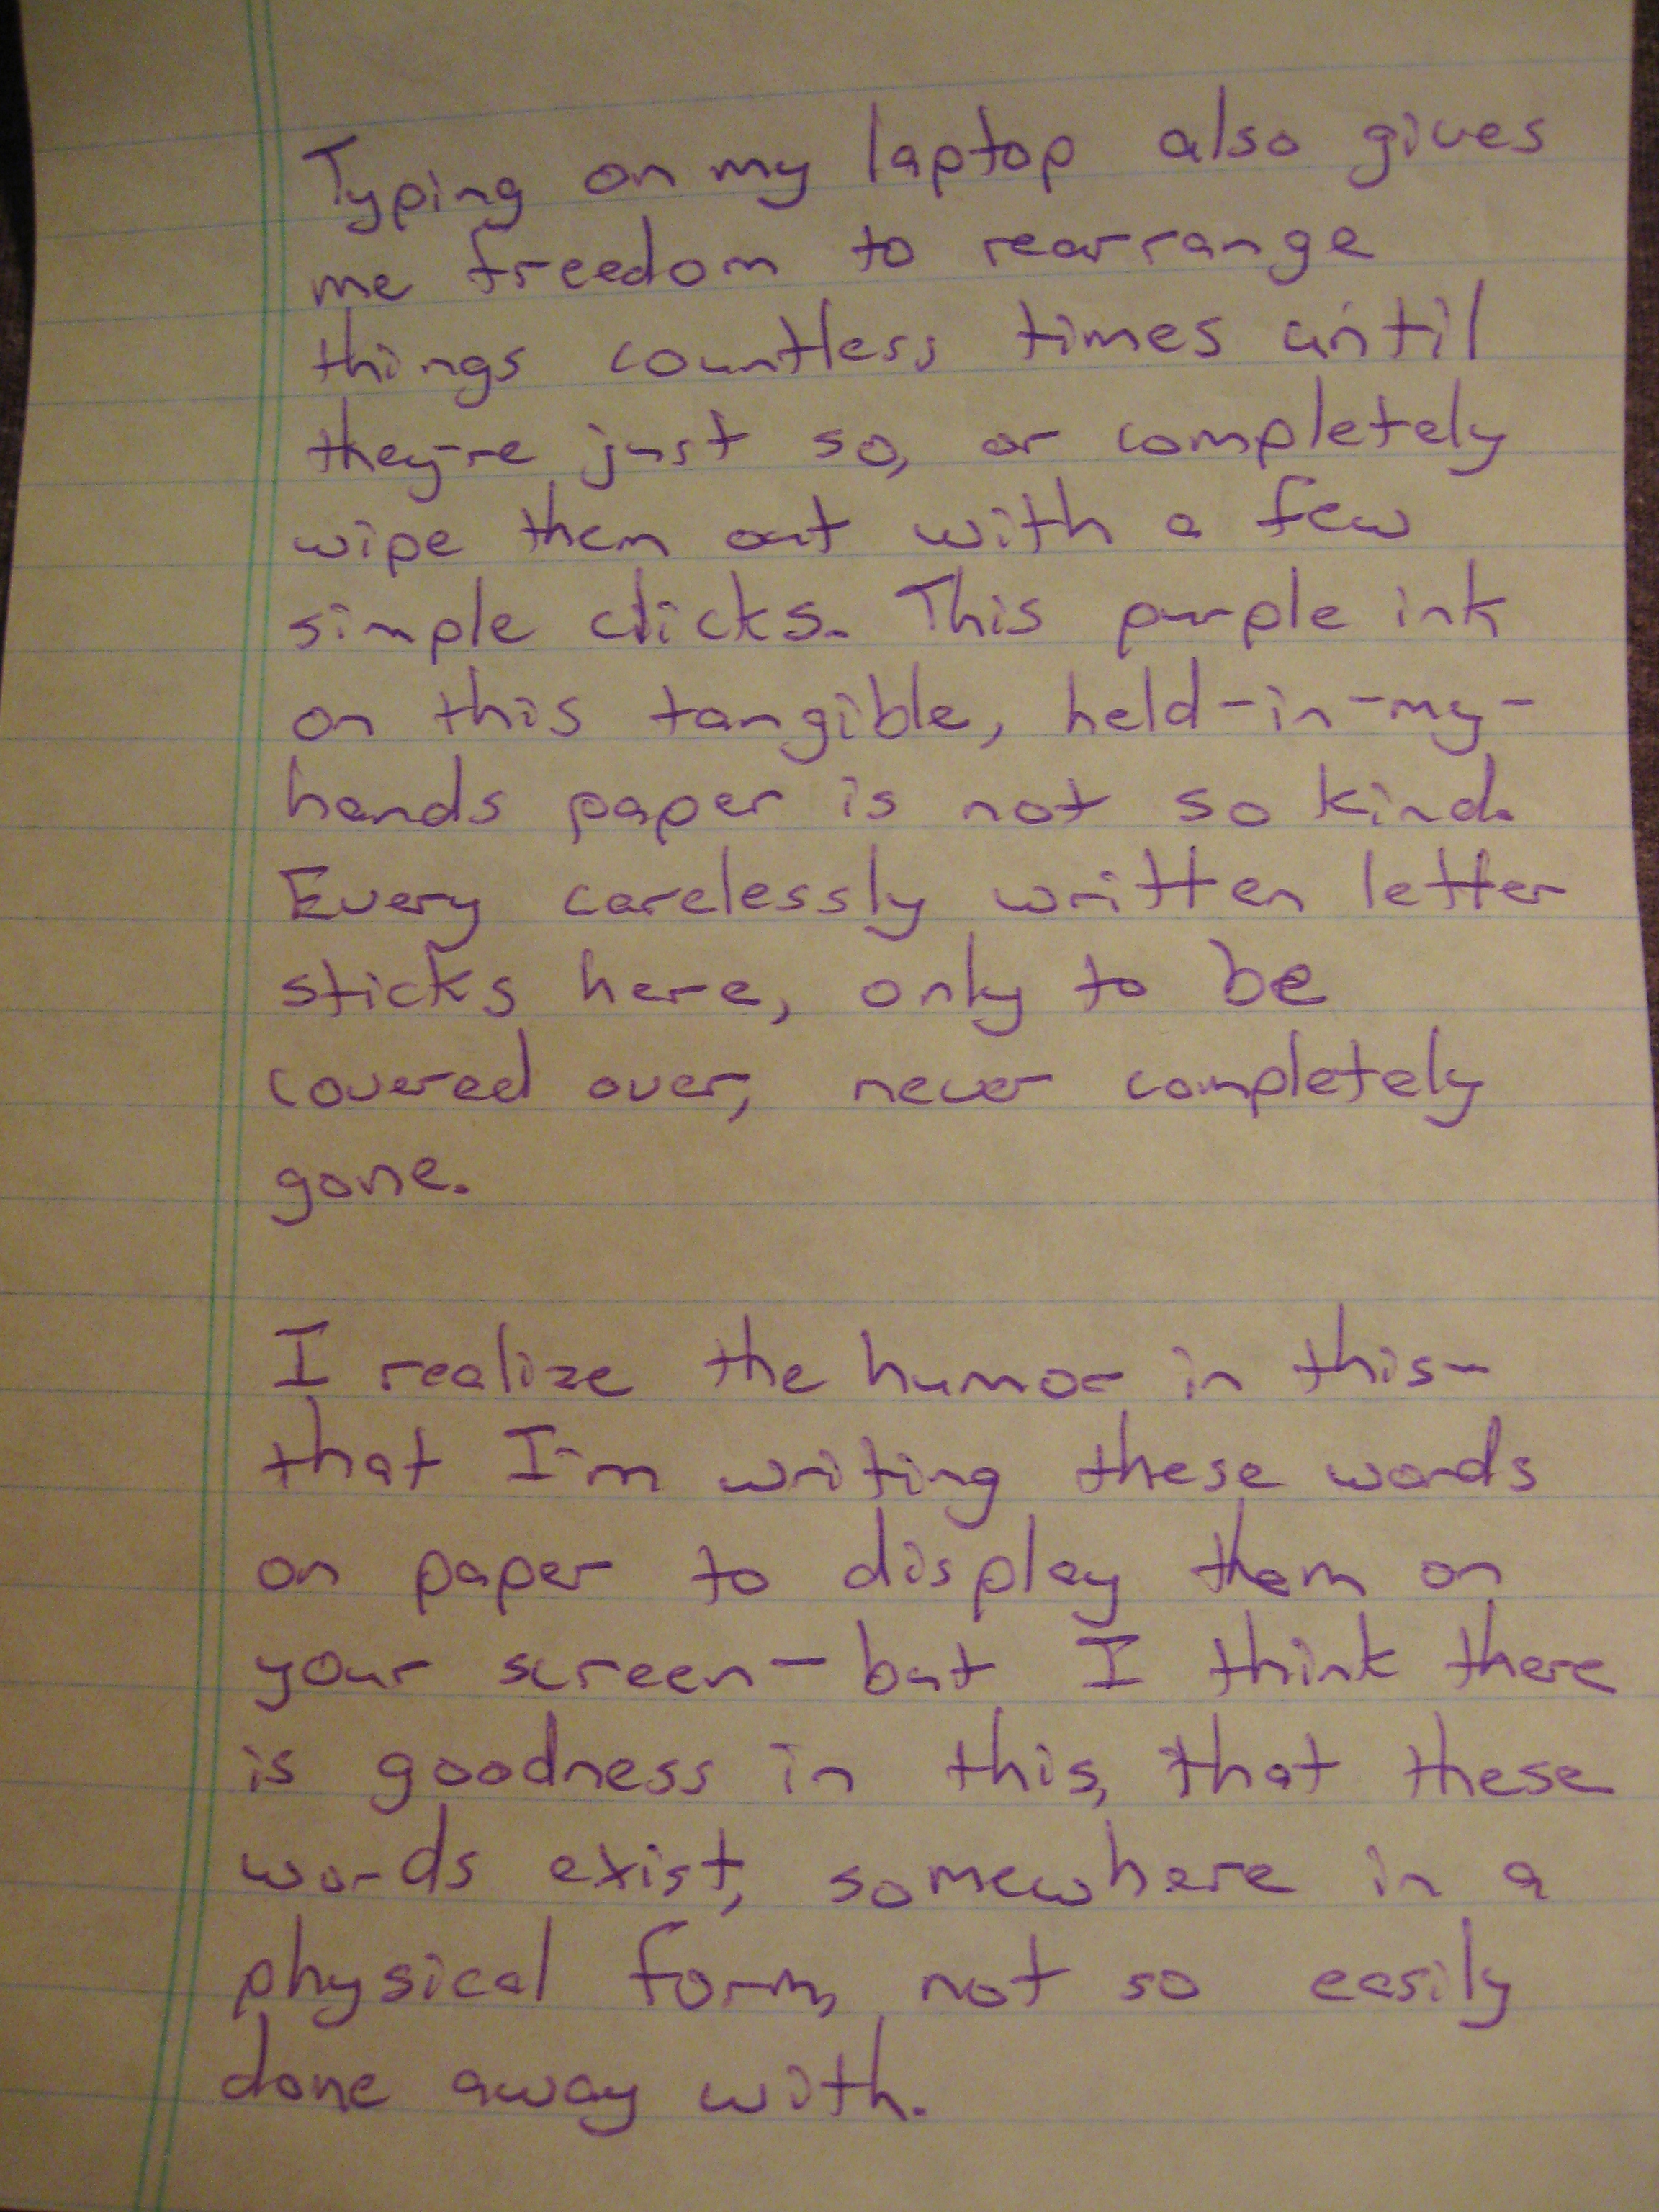 Typing on my laptop also gives
me freedom to rearrange
things countless times until
they're just so, or completely
wipe them out with a few
simple clicks. This purple ink
on this tangible, held-in-my-
hands paper is not so kind.
Every carelessly written letter
sticks here, only to be
covered over, never completely
gone.
I realize the humor in this-
that I'm writing these words
on paper to display them on
your screen-but I think there
is goodness in this, that these
words exist, somewhere in a
physical form, not so easily
done away with.